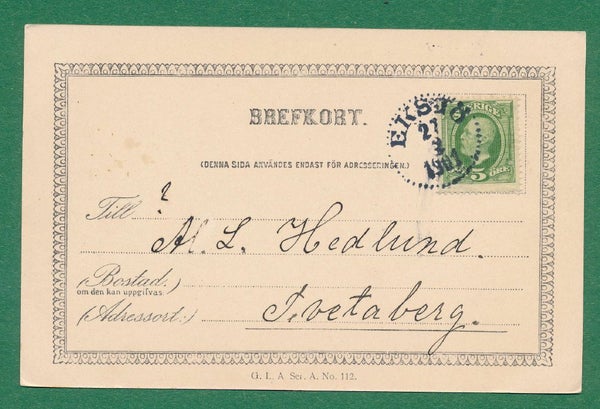 BREFKORT.
SVERIGE
5 ÖRE
EKSJÖ
21
3
1901
(DENNA SIDA ANVÄNDES ENDAST FÖR ADRESSERINGEN.)
?
Till
M. L. Hedlund.
(Bostad.)
om den kan uppgifvas.
(Adressort:)
Tvetaberg.
G. L. A Ser. A. No. 112.